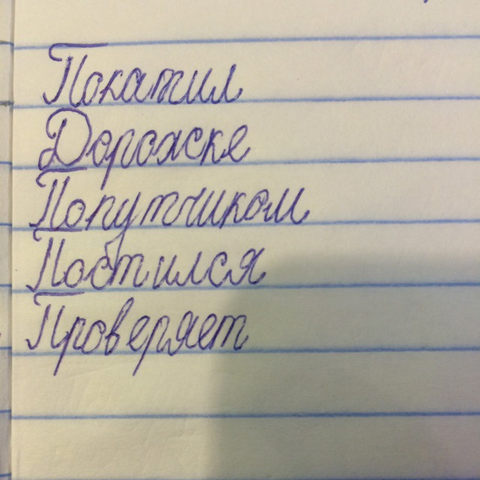 Покатил
Дорожке
Попутчиком
Постился
Проверяет